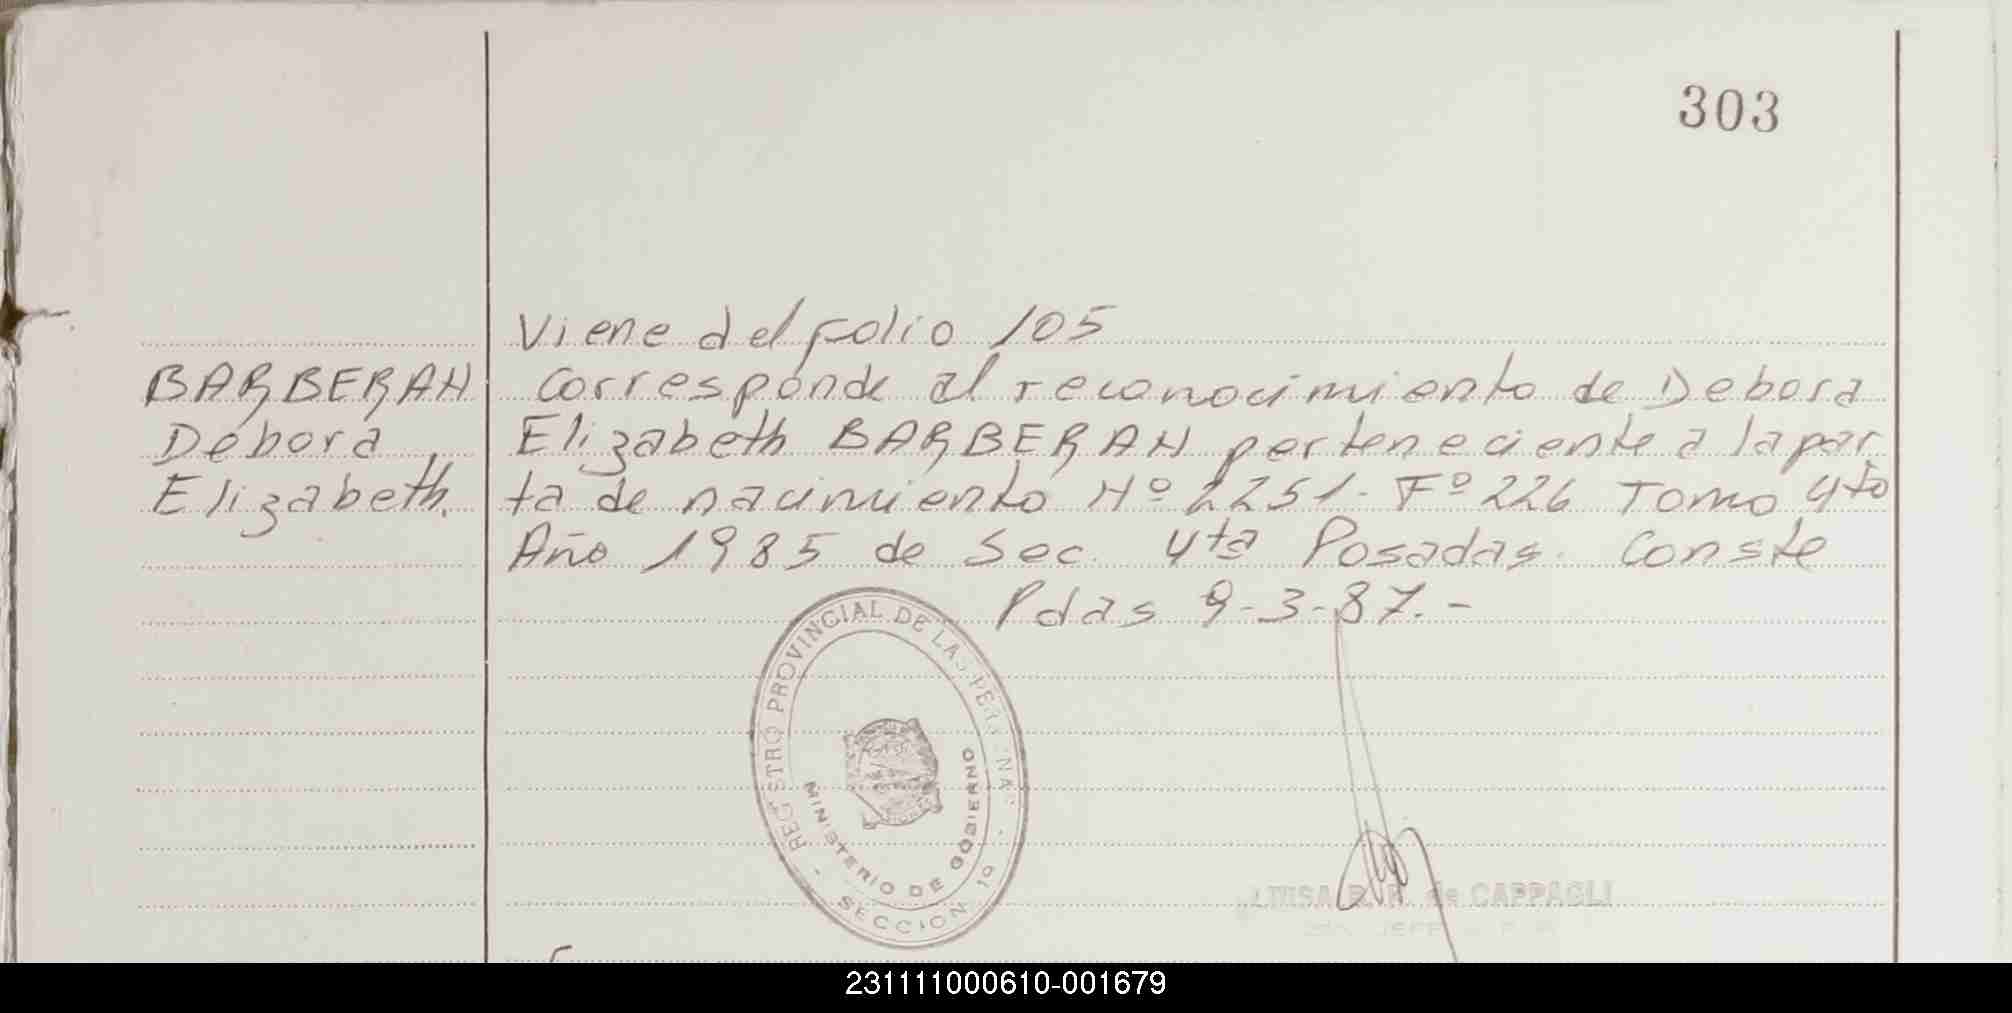 303
Viene del folio 105
BARBERAN
Debora
Elizabeth.
Corresponde al reconocimiento de Debora
Elizabeth BARBERAN perteneciente a la par
ta de nacimiento Nº 2251. Fº 226 Tomo 4to
Año 1985 de Sec. 4ta Posadas. Conste
Pdas 9-3-87.-
REGISTRO PROVINCIAL DE LAS PERSONAS
MINISTERIO DE GOBIERNO
SECCION 1º
LUISA R. R. de CAPPAGLI
JEFE
231111000610-001679